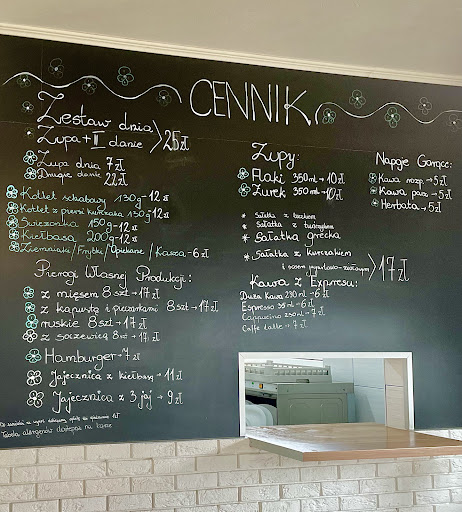 CENNIK
Zestaw dnia
Zupa + II danie > 25 zł
Zupa dnia 7 zł
Drugie danie 22 zł
Kotlet schabowy 130g - 12 zł
Kotlet z piersi kurczaka 130g 12 zł
Świeżonka 150g - 12 zł
Kiełbasa 200g - 12 zł
Ziemniaki / Frytki / Opiekane / Kasza - 6 zł
Pierogi Własnej Produkcji:
z mięsem 8 szt → 17 zł
z kapustą i pieczarkami 8 szt → 17 zł
ruskie 8 szt → 17 zł
z soczewicą 8 szt → 17 zł
Hamburger → 7 zł
Jajecznica z kiełbasą → 11 zł
Jajecznica z 3 jaj → 9 zł
Tabela alergenów dostępna na barze
Zupy:
Flaki 350 ml → 10 zł
Żurek 350 ml → 10 zł
* Sałatka z
* Sałatka z tuńczykiem
* Sałatka grecka
* Sałatka z kurczakiem
i sosem > 17 zł
Kawa z Expresu:
Duża Kawa 230 ml - 6 zł
Espresso 35 ml - 6 zł
Cappuccino 230 ml - 7 zł
Caffe Latte → 7 zł
Napoje Gorące:
Kawa rozp. → 5 zł
Kawa parz. → 5 zł
Herbata → 5 zł